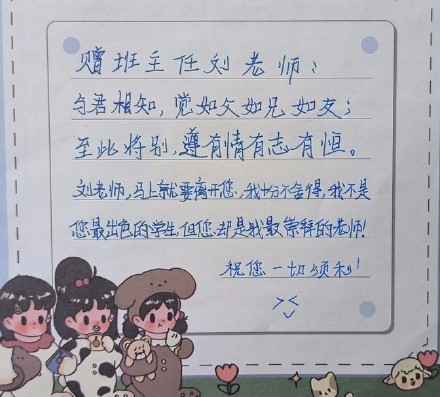 赠班主任刘老师：
与君相知，觉如父如兄如友；
至此将别，遵有情有志有恒。
刘老师，马上就要离开您，我十分不舍得，我不是
您最出色的学生，但您却是我最崇拜的老师！
祝您一切顺利！